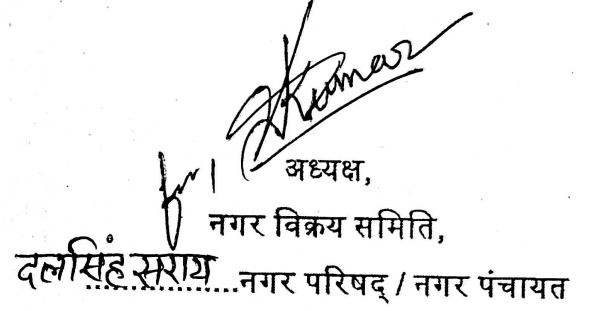 Kumar
अध्यक्ष,
नगर विक्रय समिति,
दलसिंह सराय नगर परिषद् / नगर पंचायत